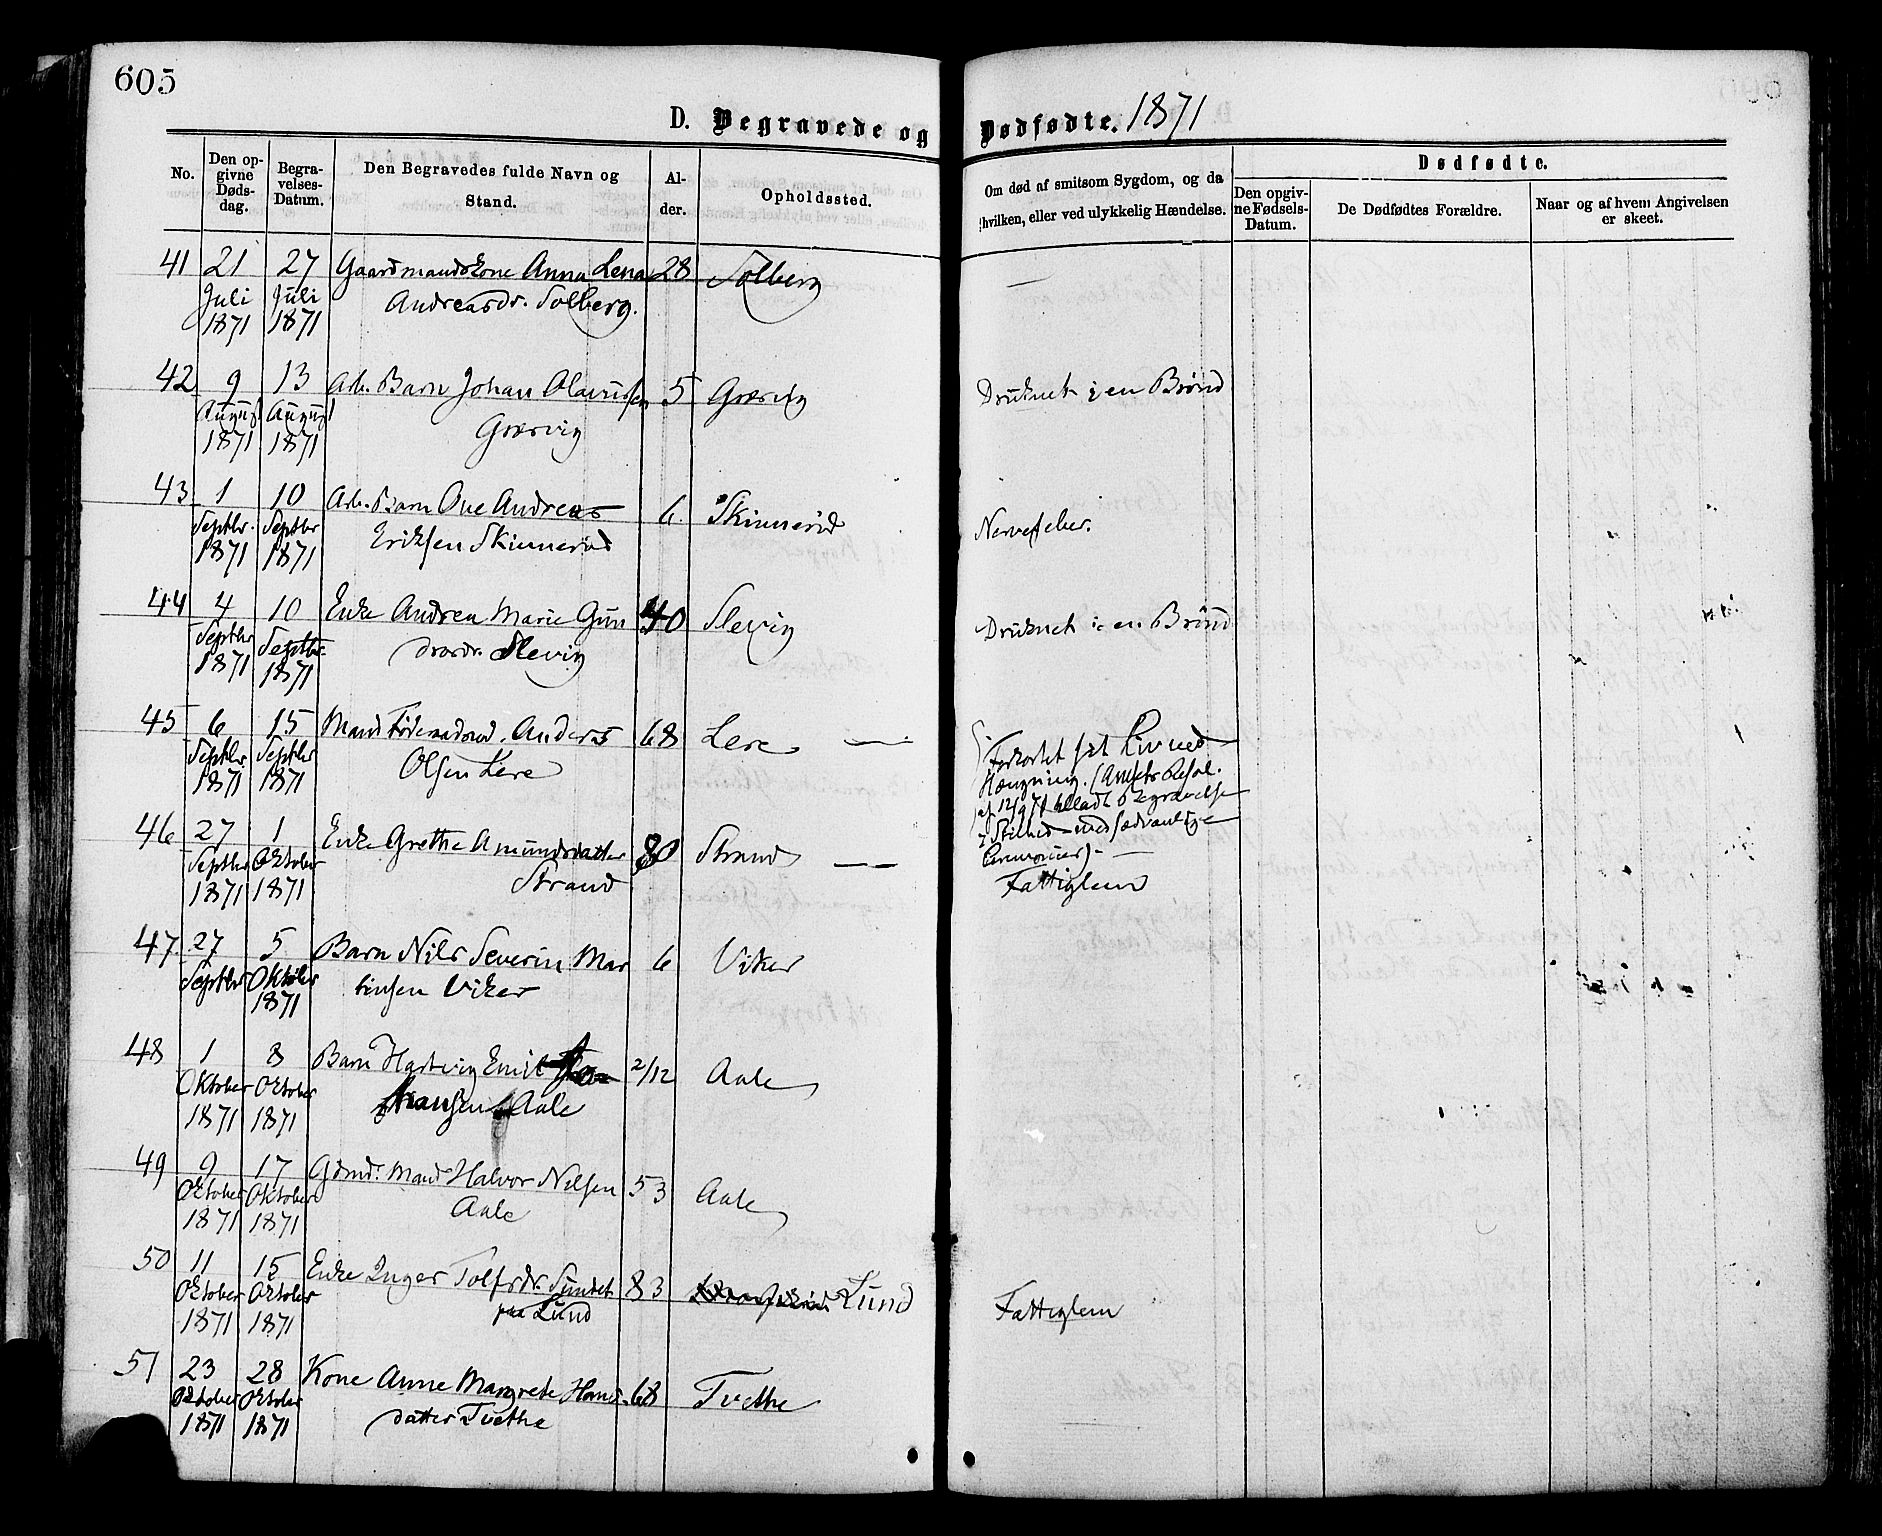 605
D. Begravede og Dødfødte. 1871
No.
Den op-
givne
Døds-
dag.
Begra-
velses-
Datum.
Den Begravedes fulde Navn og
Stand.
Al-
der.
Opholdssted.
Om død af smitsom Sygdom, og da
hvilken, eller ved ulykkelig Hændelse.
Dødfødte.
Den opgiv-
ne Fødsels-
Datum.
De Dødfødtes Forældre.
Naar og af hvem Angivelsen
er skeet.
41 21 27 Gaardmandskone Anna Lena 28 Solberg —
Juli Juli Andreasdr. Solberg.
1871 1871
42 9 13 Arb. Barn Johan Olavussen 5 Græsvig Druknet i en Brønd
August August Græsvig
1871 1871
43 1 10 Arb. Barn Ove Andreas 6 Skinnerød Nervefeber.
Septbr. Septbr Eriksen Skinnerød
1871 1871
44 4 10 Enke Andrea Marie Gun 40 Slevig Druknet i en Brønd
Septbr Septbr. drosdr. Slevig
1871 1871
45 6 15 Mand Føderaadsmd. Anders 68 Lere —
Septbr Septbr Olsen Lere
1871 1871
Forkortet sit Liv ved
Hængning. (Amtets Resol.
af 12/9 71 tilladt Begravelse
i Stilhed med sædvanlige
Ceremonier) —
46 27 1 Enke Grethe Amundsdatter 80 Strand — Fattiglem
Septbr Oktober Strand
1871 1871
47. 27 5 Barn Nils Severin Mar 6 Viker
Septbr Oktober tinsen Viker
1871
48 1 8 Barn Hartvig Emil 2/12 Aale
Oktober Oktober Hansen Aale
1871 1871
49 9 17 Gdmd. Mand Halvor Nilsen 53 Aale
Oktober Oktober Aale
1871 1871
50 11 15 Enke Inger Tolfsdr Sundet 83 Lund Fattiglem
Oktober Oktober paa Lund
1871 1871
51 23 28 Kone Anne Margrete Hans- 68 Tvethe
Oktober Oktober datter Tvethe
1871 1871